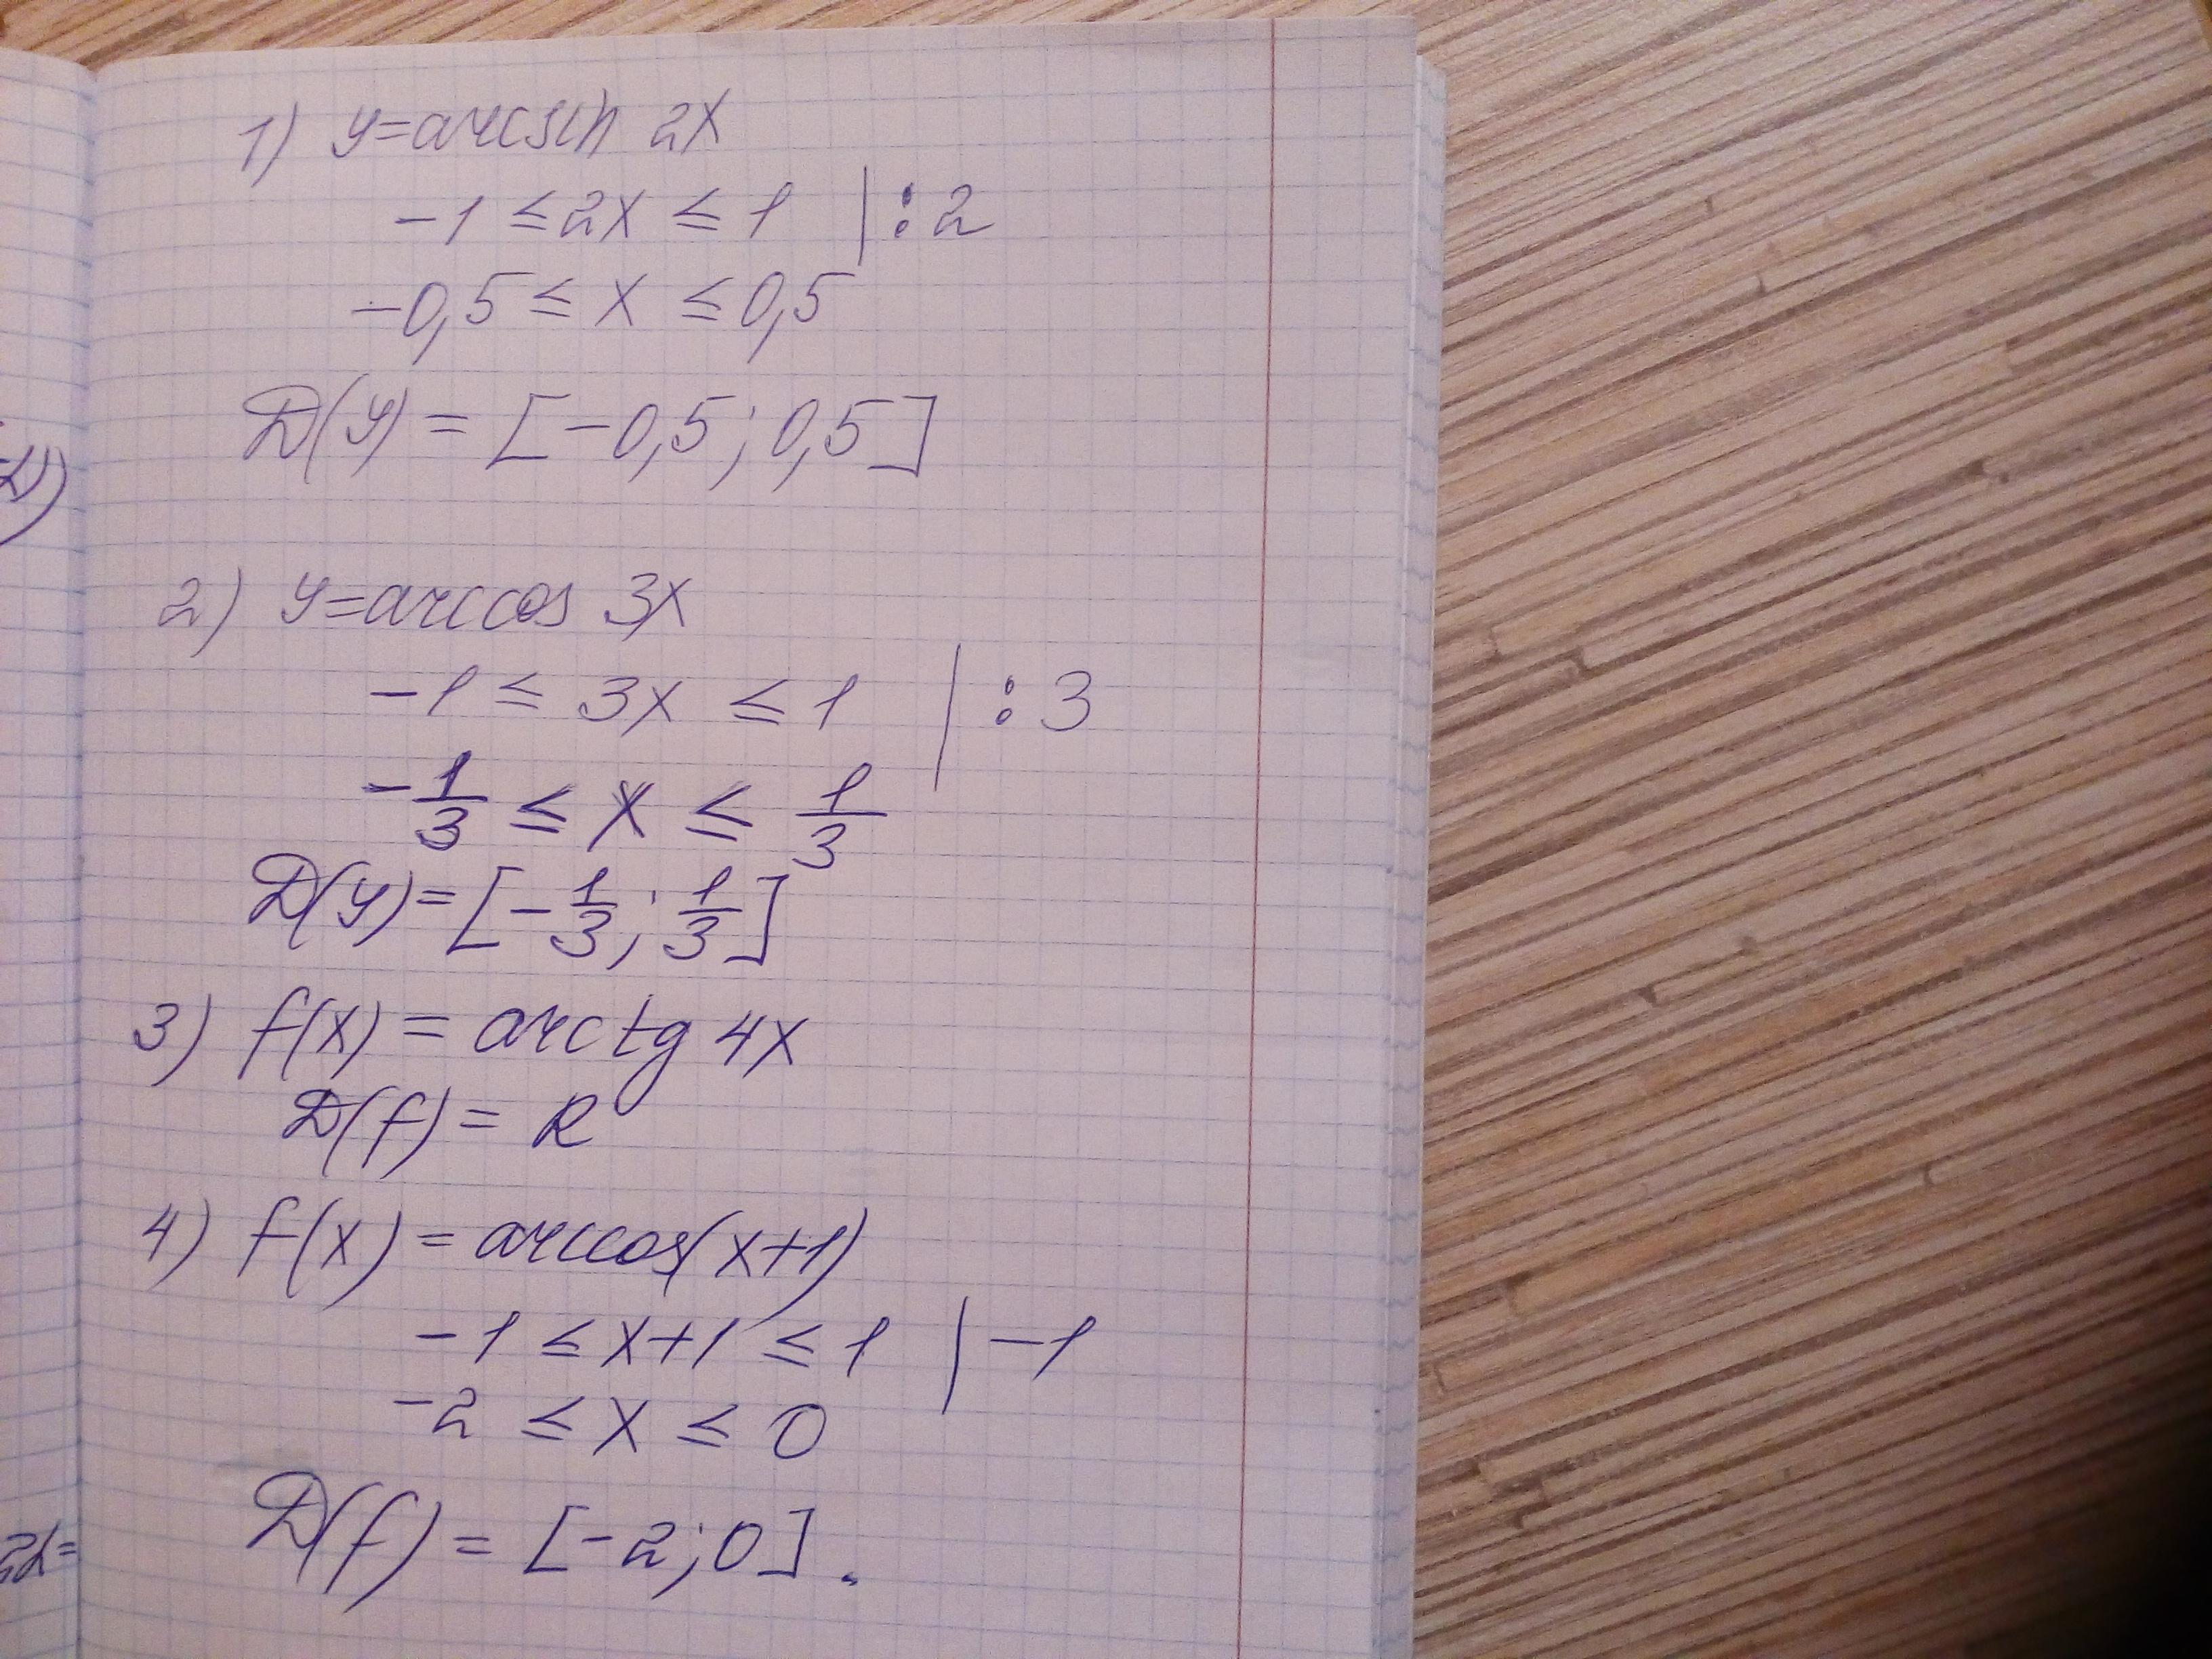 1) y=arcsin 2x
-1 ≤ 2x ≤ 1 | :2
-0,5 ≤ x ≤ 0,5
D(y) = [-0,5; 0,5]
2) y=arccos 3x
-1 ≤ 3x ≤ 1 | :3
-1/3 ≤ x ≤ 1/3
D(y) = [-1/3; 1/3]
3) f(x) = arctg 4x
D(f) = R
4) f(x) = arccos(x+1)
-1 ≤ x+1 ≤ 1 | -1
-2 ≤ x ≤ 0
D(f) = [-2; 0].